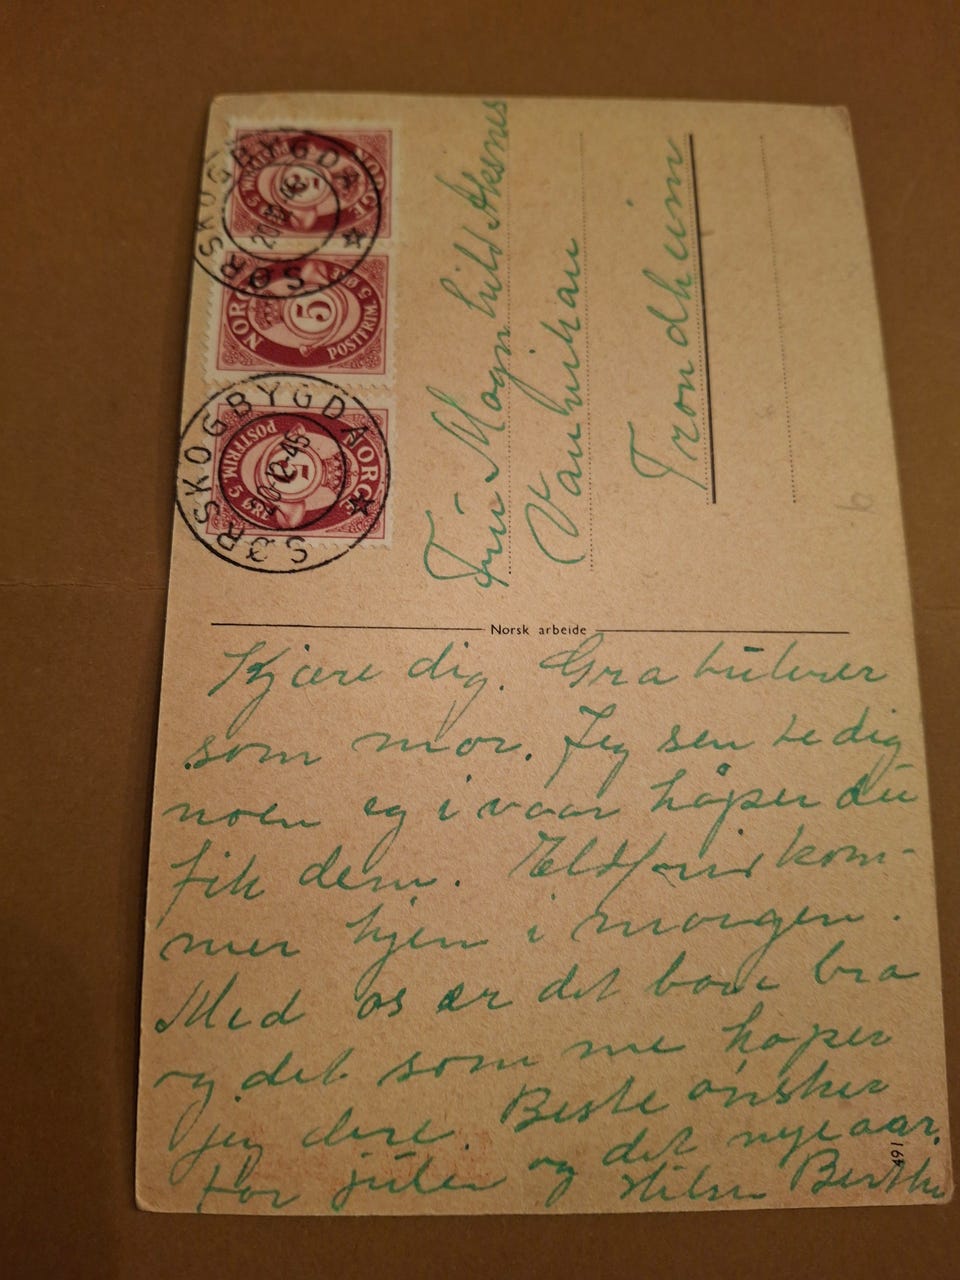 SØRSKOGBYGDA
20.12.45
NORGE
5
POSTFRIM. 5 ØRE
NORGE
5
POSTFRIM. 5 ØRE
SØRSKOGBYGDA
20-12-45
NORGE
5
POSTFRIM. 5 ØRE
Frú Magnhild Aksnes
Trondheim
Norsk arbeide
Kjære dig. Gratulerer
som mor. Jeg sente dig
noen eg i vaar håper dú
fik dem. kom-
mer hjem i morgen.
Med os er det bare bra
og det som me haper
jeg dere. Beste ønsker
for júlen og det nye aar.
Hilsen Berthe
491